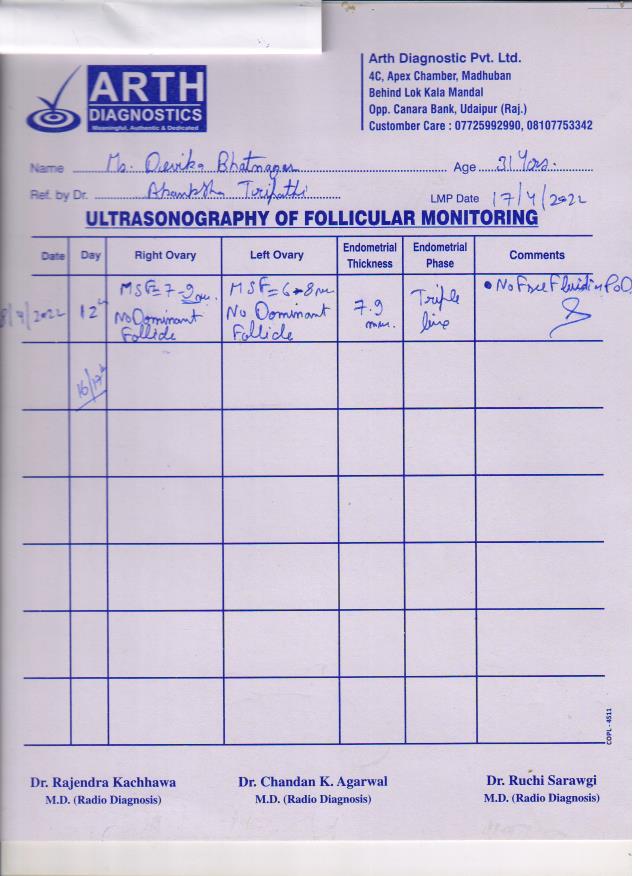 ARTH
DIAGNOSTICS
Meaningful, Authentic & Dedicated
Arth Diagnostic Pvt. Ltd.
4C, Apex Chamber, Madhuban
Behind Lok Kala Mandal
Opp. Canara Bank, Udaipur (Raj.)
Customber Care : 07725992990, 08107753342
Name Ms. Devika Bhatnagar Age 31 Yrs.
Ref. by Dr. Akanksha Tripathi LMP Date 17/4/2022
ULTRASONOGRAPHY OF FOLLICULAR MONITORING
Date Day Right Ovary Left Ovary Endometrial Thickness Endometrial Phase Comments
8/4/2022 12th MSF=7-9mm. No Dominant Follicle MSF=6-8mm No Dominant Follicle 7.9 mm. Triple line • No Free Fluid in POD
16/17th
COPL - 4511
Dr. Rajendra Kachhawa Dr. Chandan K. Agarwal Dr. Ruchi Sarawgi
M.D. (Radio Diagnosis) M.D. (Radio Diagnosis) M.D. (Radio Diagnosis)